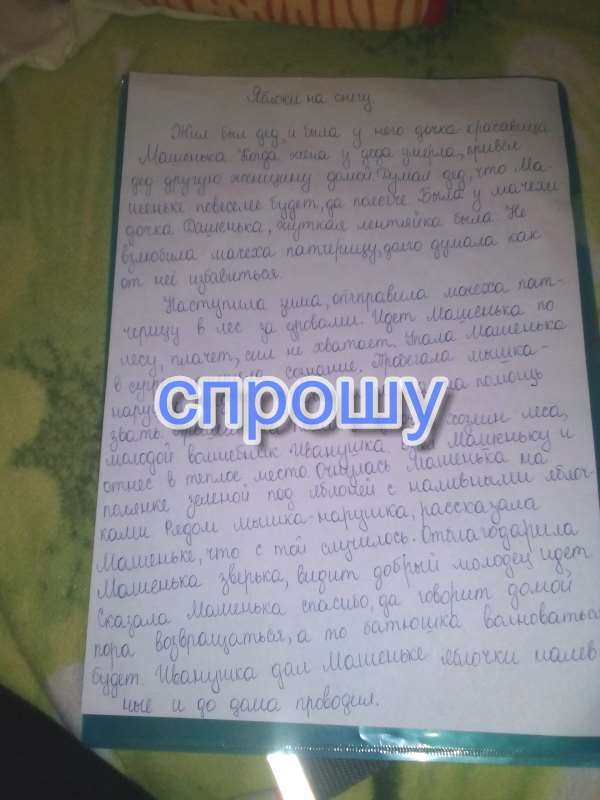 Яблоки на снегу.
Жил был дед, и была у него дочка красавица
Машенька. Когда жена у деда умерла, привел
дед другую женщину домой. Думал дед, что Ма-
шеньке повеселее будет, да полегче. Была у мачехи
дочка Дашенька, жуткая лентяйка была. Не
взлюбила мачеха патчерицу, долго думала как
от неё избавиться.
Наступила зима, отправила мачеха пат-
черицу в лес за дровами. Идет Машенька по
лесу, плачет, сил не хватает. Упала Машенька
в сознание. Пробегала мышка-
нару на помощь
спрошу
звать. хозяин леса,
молодой волшебник Иванушка. Машеньку и
отнес в теплое место. Очнулась Машенька на
полянке зеленой под яблоней с наливными яблоч-
ками. Рядом мышка-нарушка, рассказала
Машеньке, что с той случилось. Отблагодарила
Машенька зверька, видит добрый молодец идет.
Сказала Машенька спасибо, да говорит домой
пора возвращаться, а то батюшка волноваться
будет. Иванушка дал Машеньке яблочки налив
ные и до дома проводил.